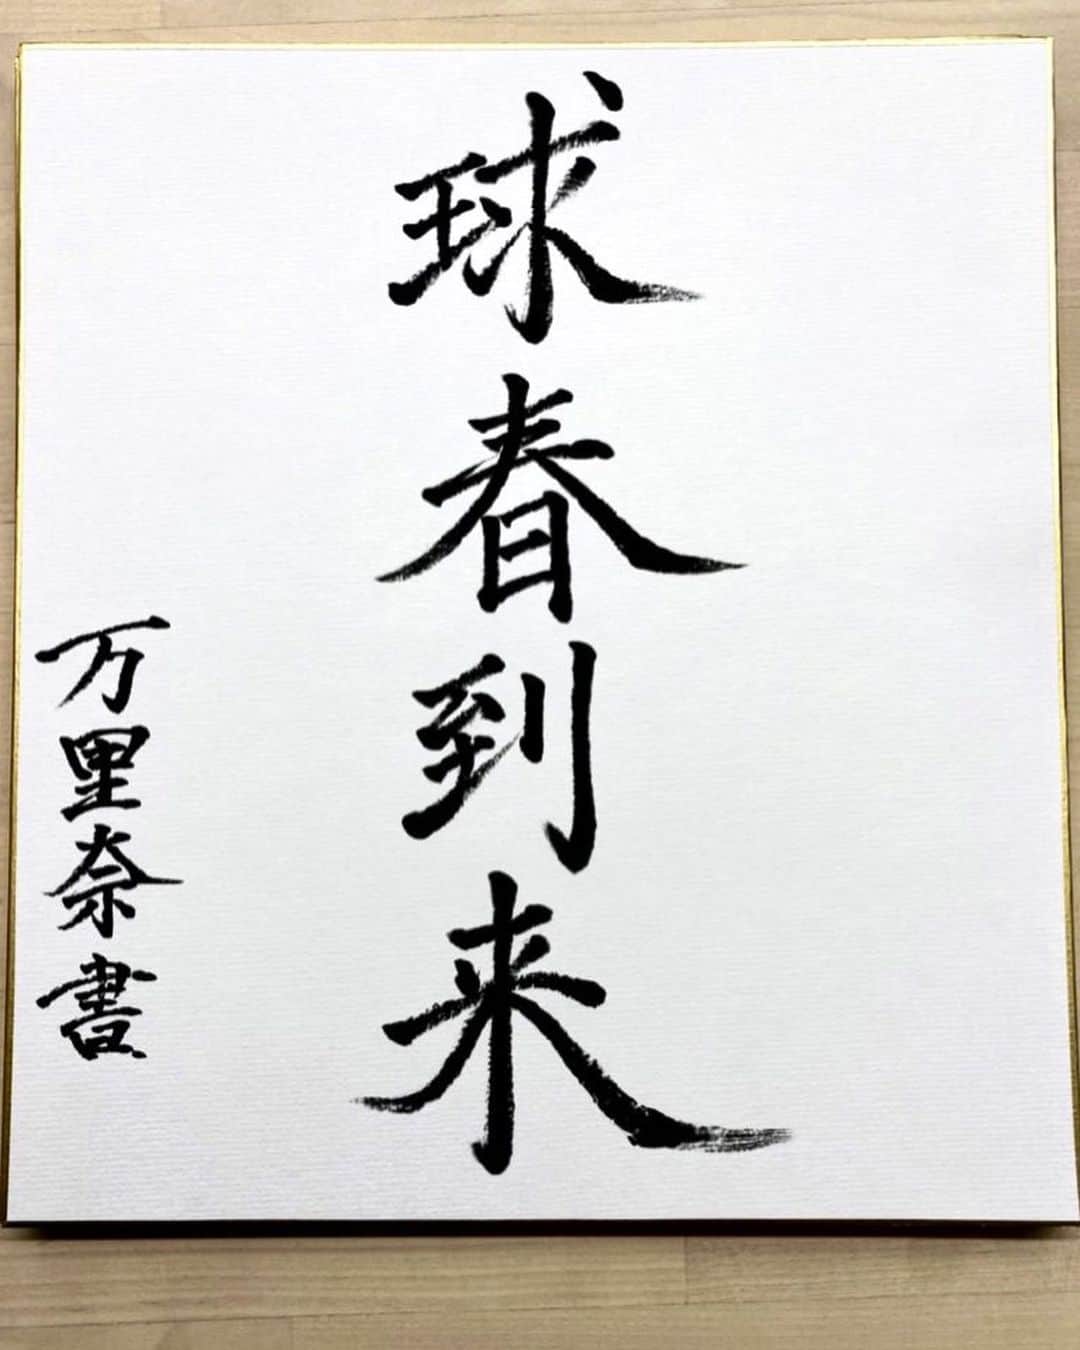 球春到来
万里奈書